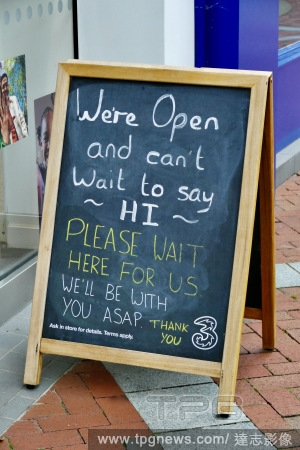 We're Open
and can't
Wait to say
~ HI ~
PLEASE WAIT
HERE FOR US.
WE'LL BE WITH
YOU ASAP. THANK
YOU
3
Ask in store for details. Terms apply.
TPG
www.tpgnews.com/ 達志影像